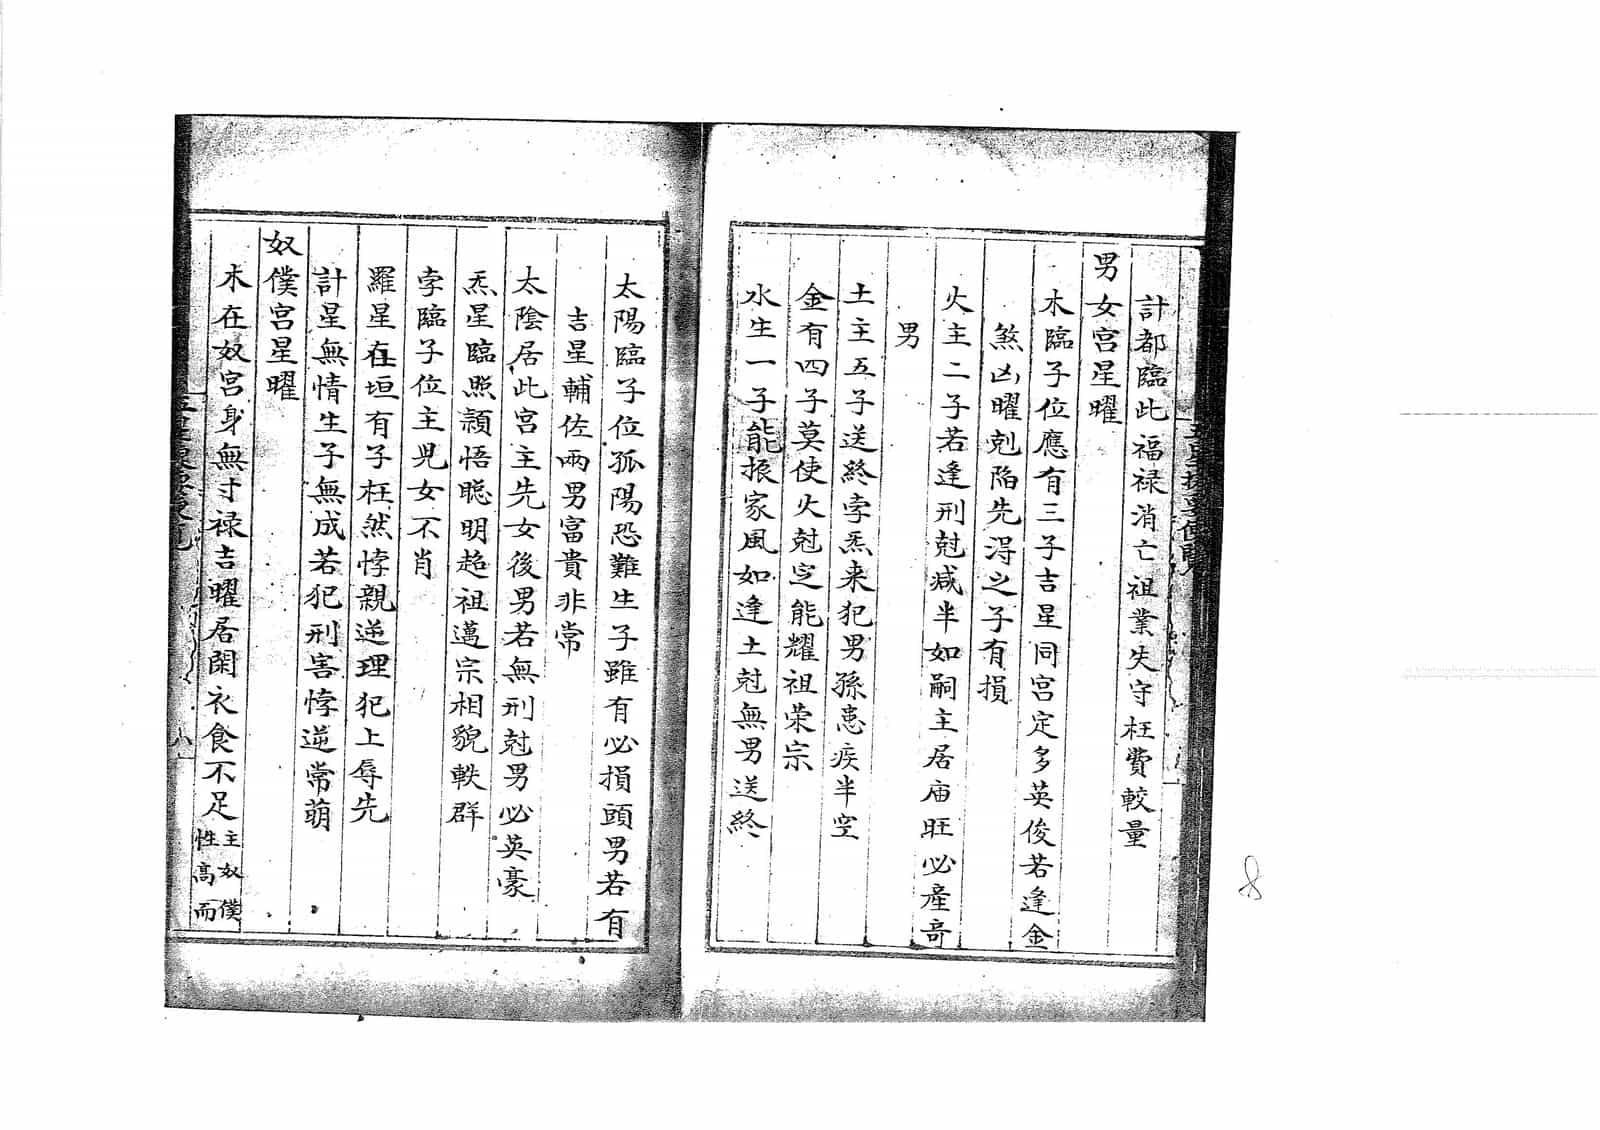 計都臨此福禄消亡祖業失守枉費較量
男女宮星曜
木臨子位應有三子吉星同宮定多英俊若逢金
煞凶曜剋陷先淂之子有損
火主二子若逢刑尅减半如嗣主居庙旺必產奇
男
土主五子送終孛炁来犯男孫患疾半空
金有四子莫使火尅定能耀祖荣宗
水生一子能振家風如逢土尅無男送終
太陽臨子位孤陽恐難生子雖有必損頭男若有
吉星輔佐兩男富貴非常
太陰居此宮主先女後男若無刑尅男必英豪
炁星臨照頴悟聦明超祖邁宗相貌軼群
孛臨子位主児女不肖
羅星在垣有子枉然悖親逆理犯上辱先
計星無情生子無成若犯刑害悖逆常萌
奴僕宮星曜
木在奴宮身無寸禄吉曜居閑衣食不足主奴僕
性高而
8